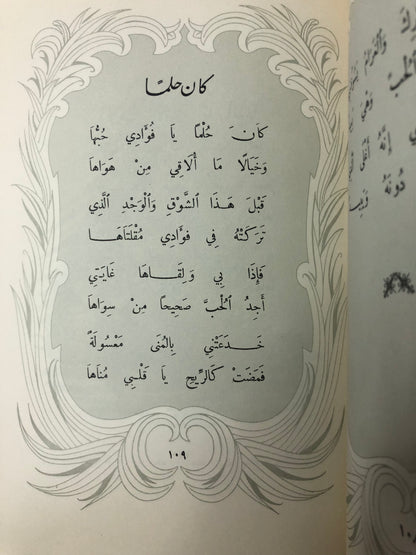 كان حلمًا
كَانَ حُلْمًا يَا فُؤَادِي حُبُّهَا
وَخَيَالًا مَا أُلَاقِي مِنْ هَوَاهَا
قَبْلَ هَذَا الشَّوْقِ وَالْوَجْدِ الَّذِي
تَرَكَتْهُ فِي فُوَادِي مُقْلَتَاهَا
فَإِذَا بِي وَلِقَاهَا غَايَتِي
أَجِدُ الْحُبَّ صَحِيحًا مِنْ سِوَاهَا
خَدَعَتْنِي بِالْمُنَى مَعْسُولَةً
فَمَضَتْ كَالرِّيحِ يَا قَلْبِي مُنَاهَا
١٠٩
وَالْغَرَامُ
وَهْيَ
إِنَّهُ أَغْلَى
دُونَهُ